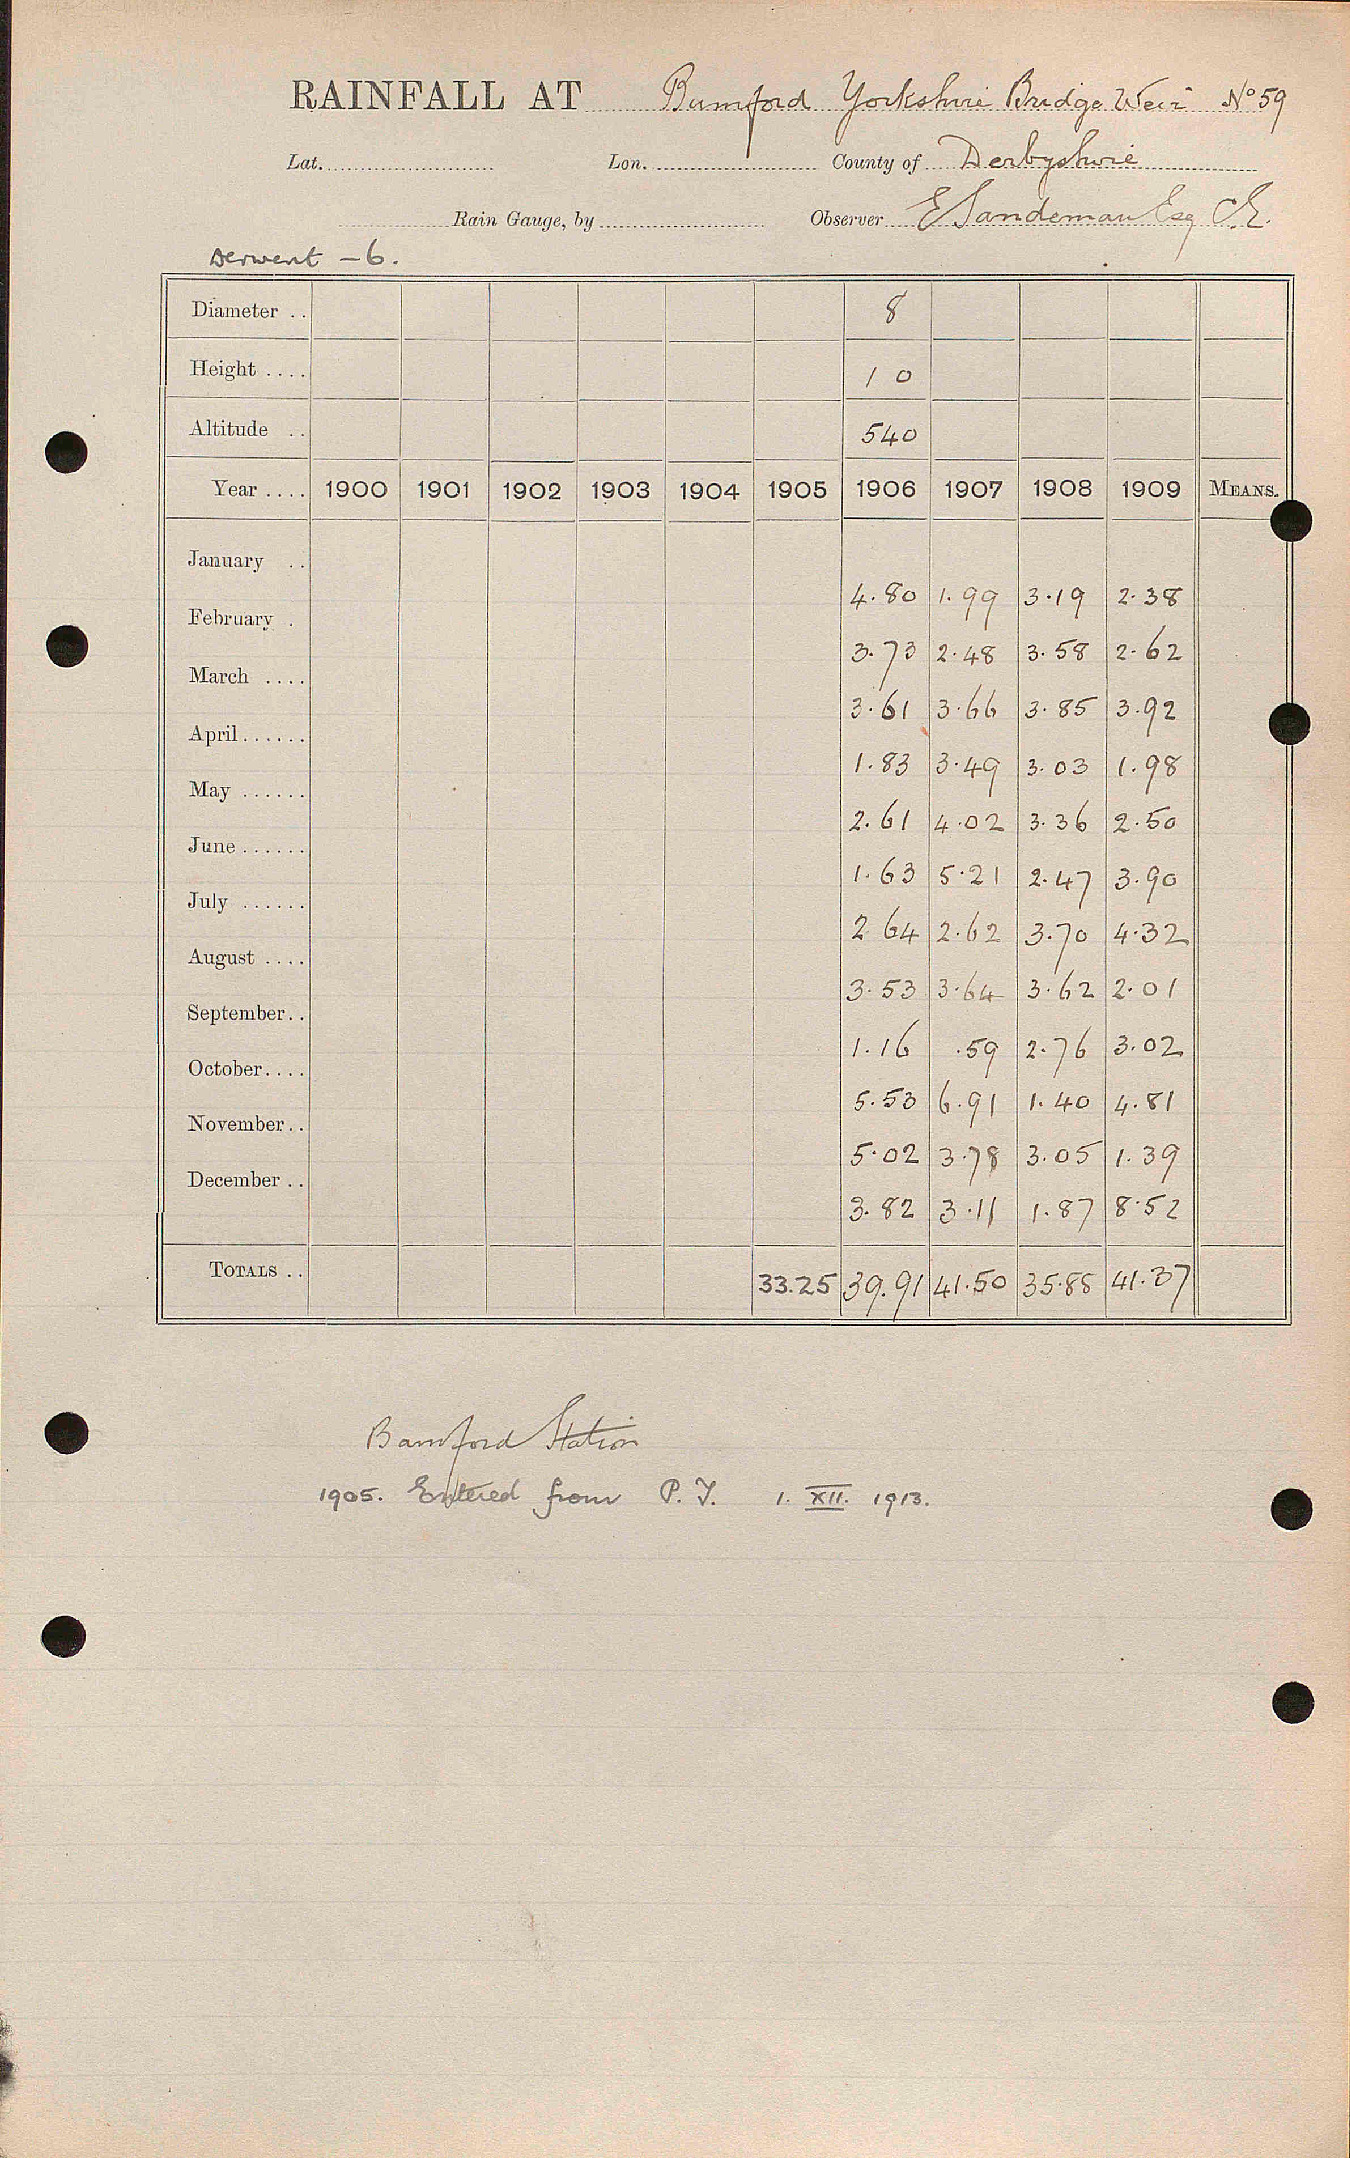 RAINFALL AT Bamford Yorkshire Bridge Weir No 59
Lat. Lon. County of Derbyshire
Rain Gauge, by Observer E Sandeman Esq C.E.
Derwent - 6.
Diameter .. 8
Height .... 1 0
Altitude .. 540
Year .... 1900 1901 1902 1903 1904 1905 1906 1907 1908 1909 MEANS.
January .. 4.80 1.99 3.19 2.38
February . 3.73 2.48 3.58 2.62
March .... 3.61 3.66 3.85 3.92
April...... 1.83 3.49 3.03 1.98
May ...... 2.61 4.02 3.36 2.50
June ...... 1.63 5.21 2.47 3.90
July ...... 2.64 2.62 3.70 4.32
August .... 3.53 3.64 3.62 2.01
September.. 1.16 .59 2.76 3.02
October.... 5.53 6.91 1.40 4.81
November.. 5.02 3.78 3.05 1.39
December .. 3.82 3.11 1.87 8.52
TOTALS .. 33.25 39.91 41.50 35.88 41.37
Bamford Station
1905. Entered from P. T. 1. XII. 1913.